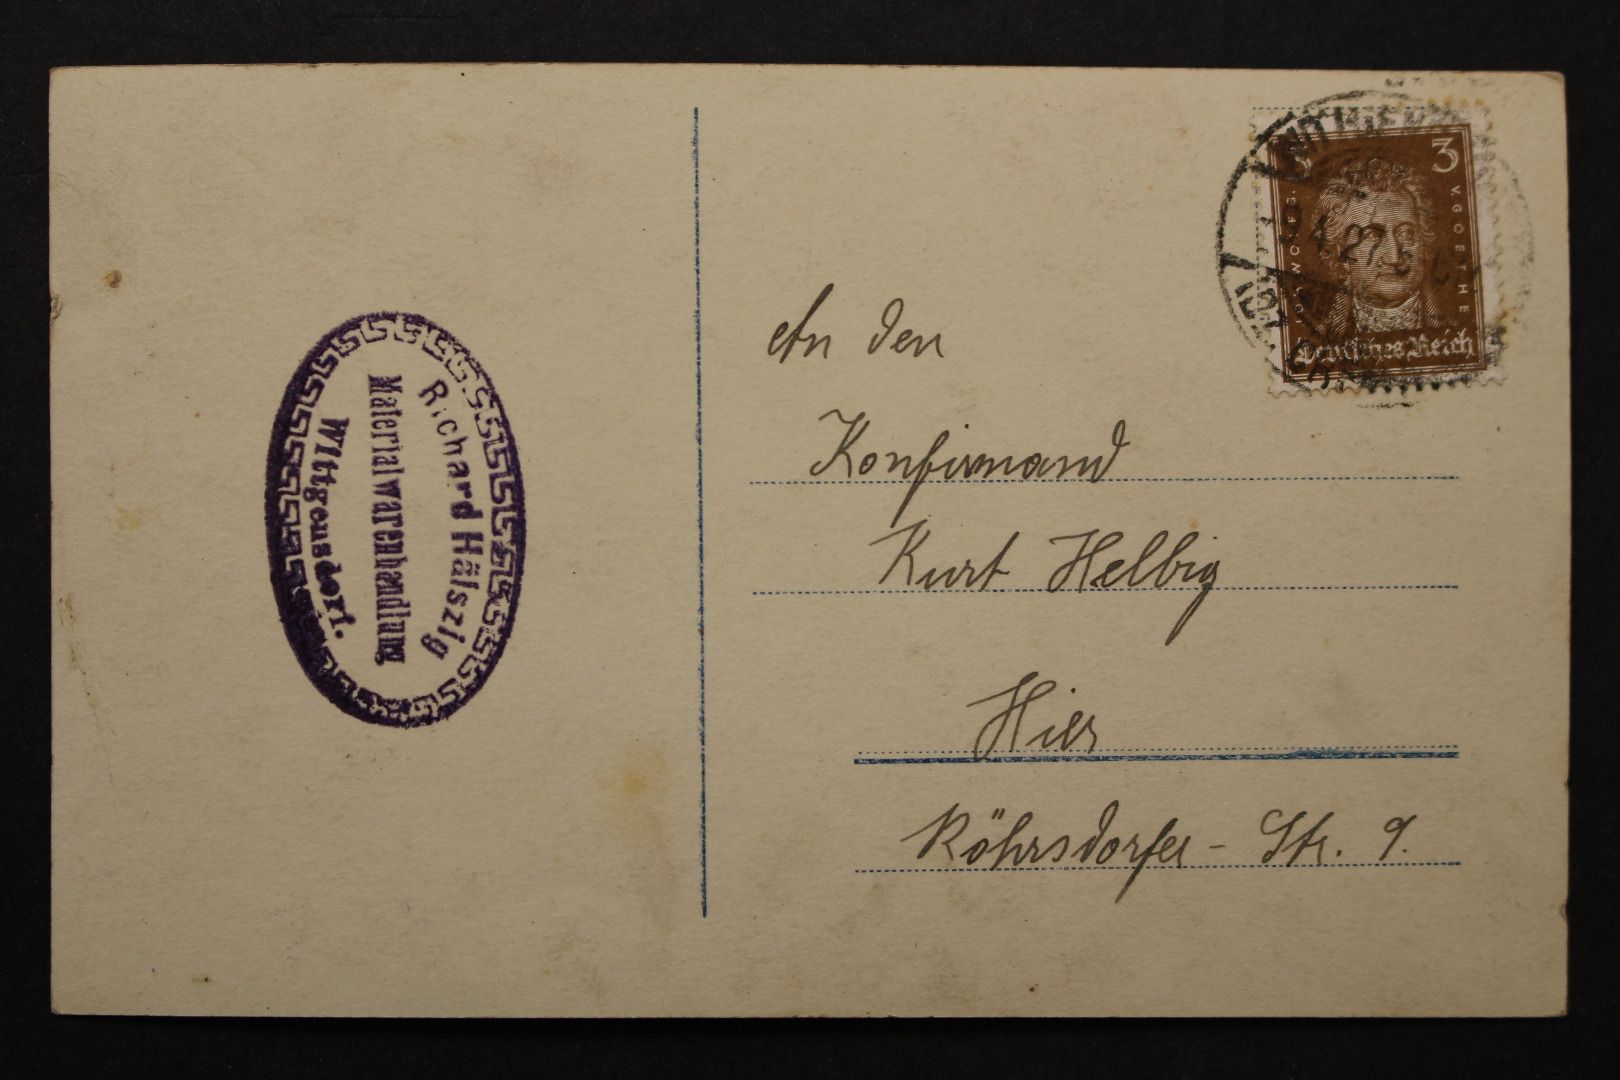 Richard Hälszig
Materialwarenhandlung
Wittgensdorf.
3 3
JOH. WOLFG. V. GOETHE
Deutsches Reich
4.27
An den
Konfirmand
Kurt Helbig
Hier
Röhrsdorfer-Str. 9.